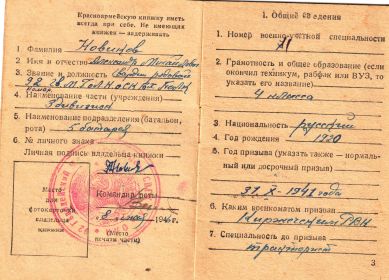 Красноармейскую книжку иметь
всегда при себе. Не имеющих
книжек — задерживать
1. Фамилия Новиков
2. Имя и отчество Александр
3. Звание и должность гвардии рядовой
4. Наименование части (учреждения)
3 дивизион
5. Наименование подразделения (батальон,
рота) 5 батарея
6. № личного знака
Личная подпись владельца книжки
Место
для
фотокарточки
владельца
книжки
Командир роты
8 1946 г.
(Место
печати части)
I. Общие сведения
1. Номер военно-учетной специальности
2. Грамотность и общее образование (если
окончил техникум, рабфак или ВУЗ, то
указать его название)
4 класса
3. Национальность русский
4. Год рождения 1920
5. Год призыва (указать также — нормаль-
ный или досрочный призыв)
31.X-1941 года
6. Каким военкоматом призван
РВК
7. Специальность до призыва
тракторист
3